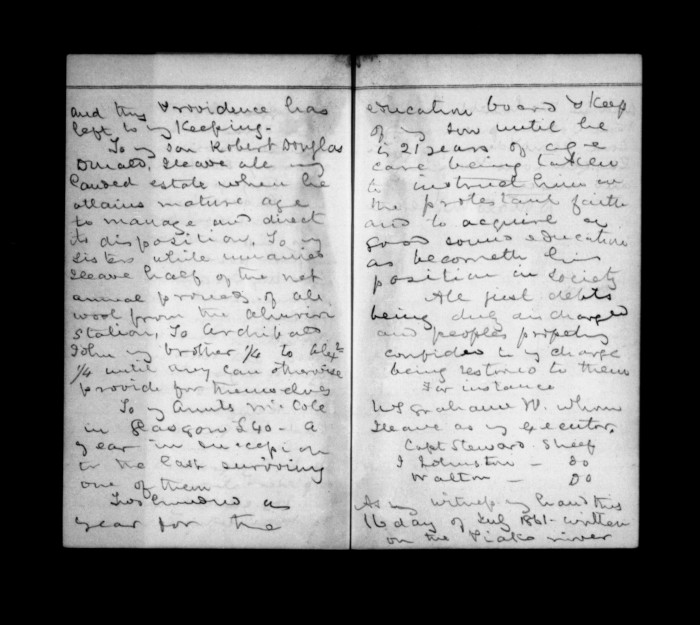 and thy Providence has
left to my Keeping -
To my son Robert Douglas
Donald, I leave all my
landed estate when he
attains mature age
to manage and direct
its disposition, To my
sisters while unmarried
I leave half of the net
annual proceeds of all
wool from the Ahuriri
Station, To Archibald
John my brother 1/4 to Alexr
1/4 until any can otherwise
provide for themselves
To my Aunts McCole
in Glasgow £40 - a
year in succession
to the last surviving
one of them
Two hundred a
year for the
education board & Keep
of my son until he
is 21 years of age
care being taken
to instruct him in
the protestant faith
and to acquire a
good sound education
as becometh his
position in Society
All just debts
being duly discharged
and peoples property
confided to my charge
being restored to them
For instance
Graham W. whom
I leave as my executor.
Capt Steward. Sheep
J Johnston - 30
Walton - Do
As my witness my hand this
16 day of July 1861 - written
on the Piako river